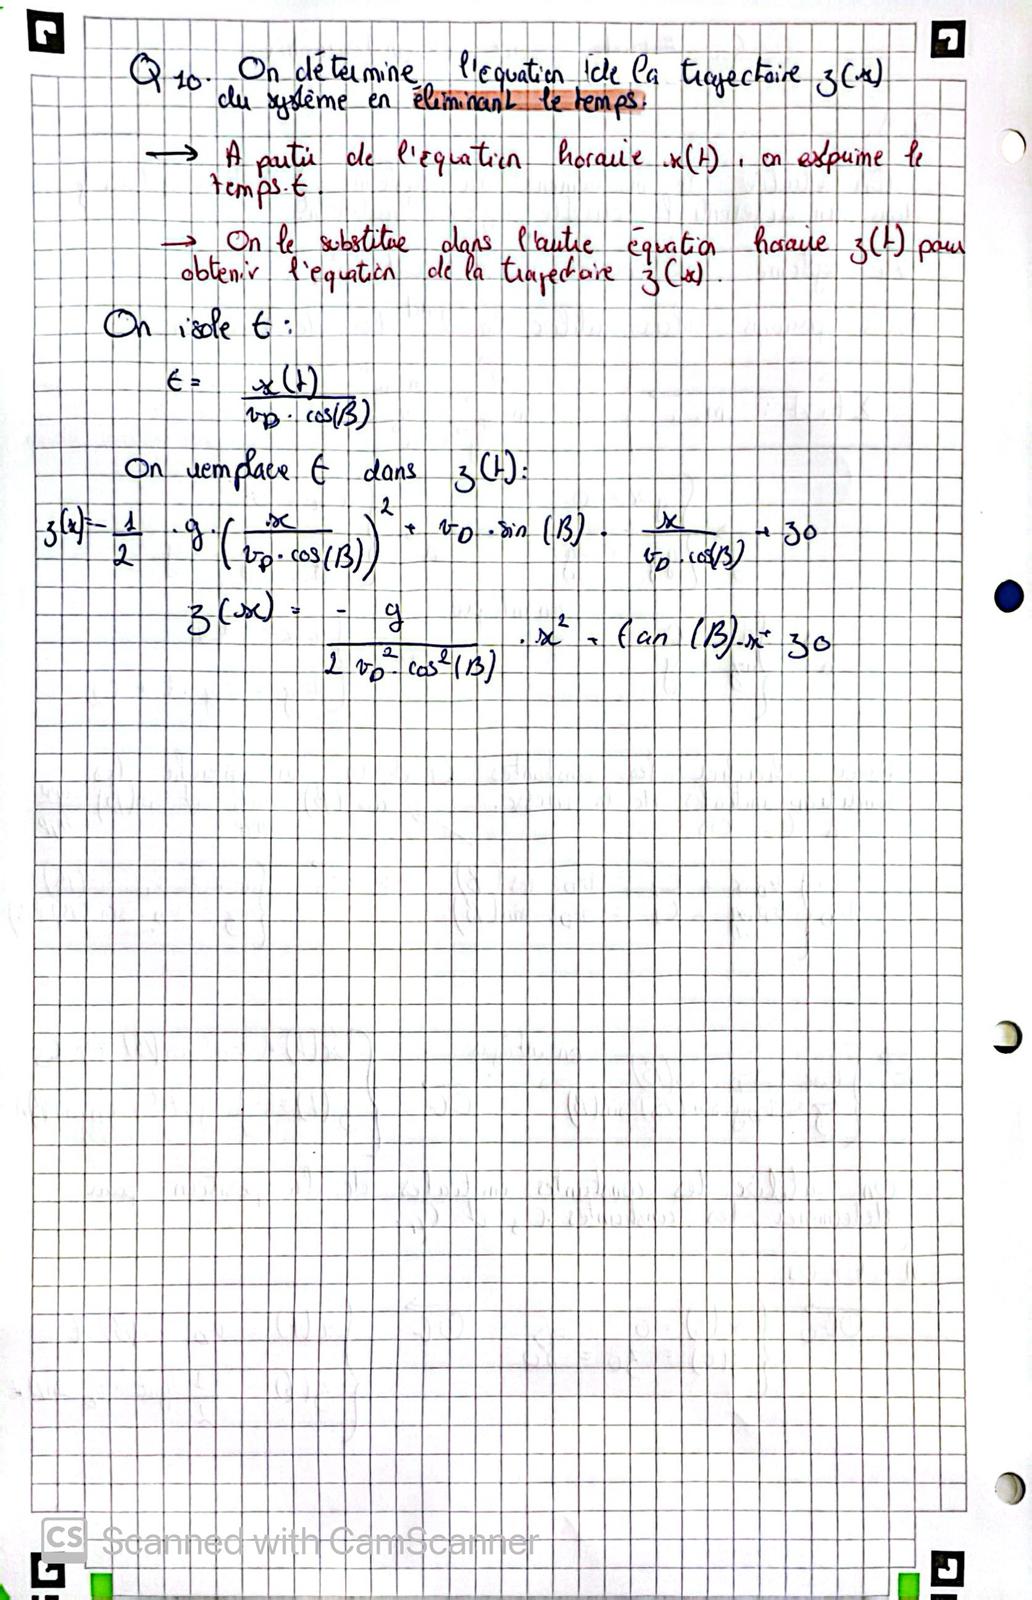 Q 10. On détermine l'equation de la trajectoire z(x)
du système en éliminant le temps.
→ A partir de l'équation horaire x(t), on exprime le
temps t.
→ On le substitue dans l'autre équation horaire z(t) pour
obtenir l'equation de la trajectoire z(x).
On isole t :
t = x(t) / (v_D · cos(B))
On remplace t dans z(t) :
z(x) = - 1/2 · g · (x / (v_D · cos(B)))² + v_D · sin(B) · x / (v_D · cos(B)) + z0
z(x) = - g / (2 v_D² · cos²(B)) · x² + tan(B) · x + z0
CS Scanned with CamScanner